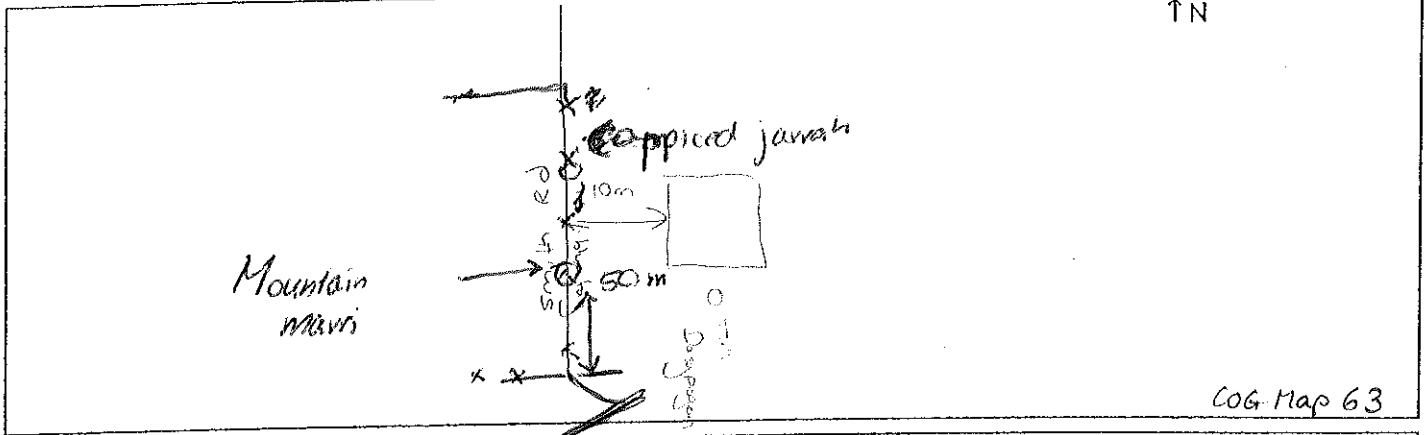 ↑N
Coppiced jarrah
Rd
10m
Mountain
marri
50m
COG Map 63